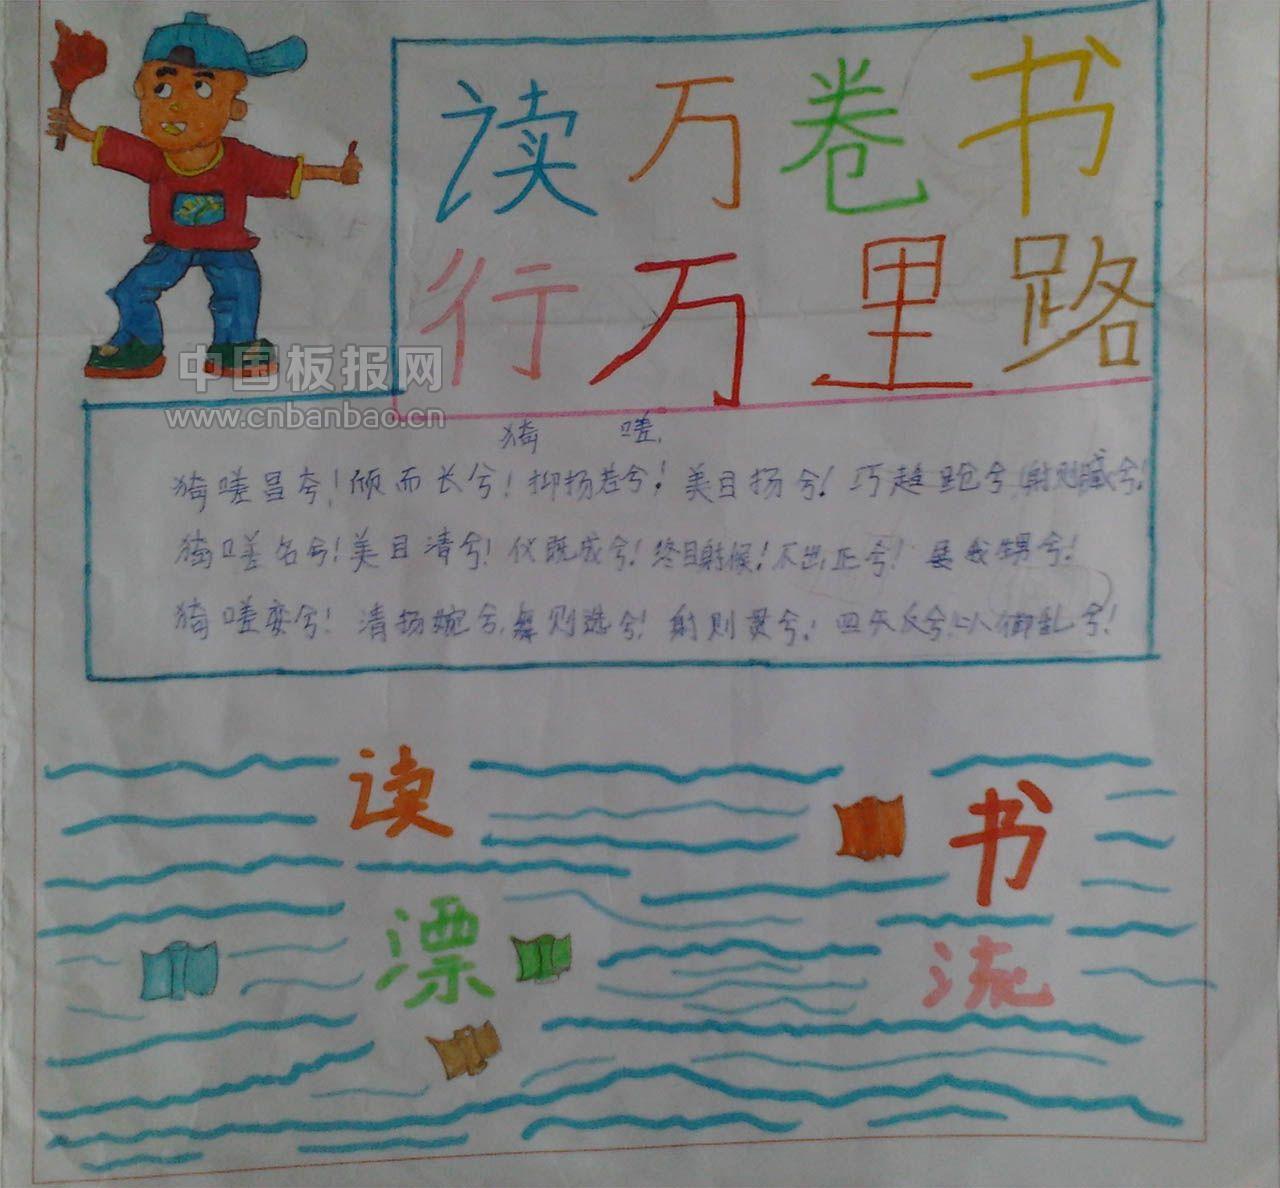 读万卷书
行万里路
中国板报网
www.cnbanbao.cn
猗 嗟
猗嗟昌兮!颀而长兮!抑扬若兮!美目扬兮!巧趋跄兮,射则臧兮!
猗嗟名兮!美目清兮!仪既成兮!终日射候!不出正兮!展我甥兮!
猗嗟娈兮!清扬婉兮,舞则选兮!射则贯兮!四矢反兮,以御乱兮!
读 书
漂 流